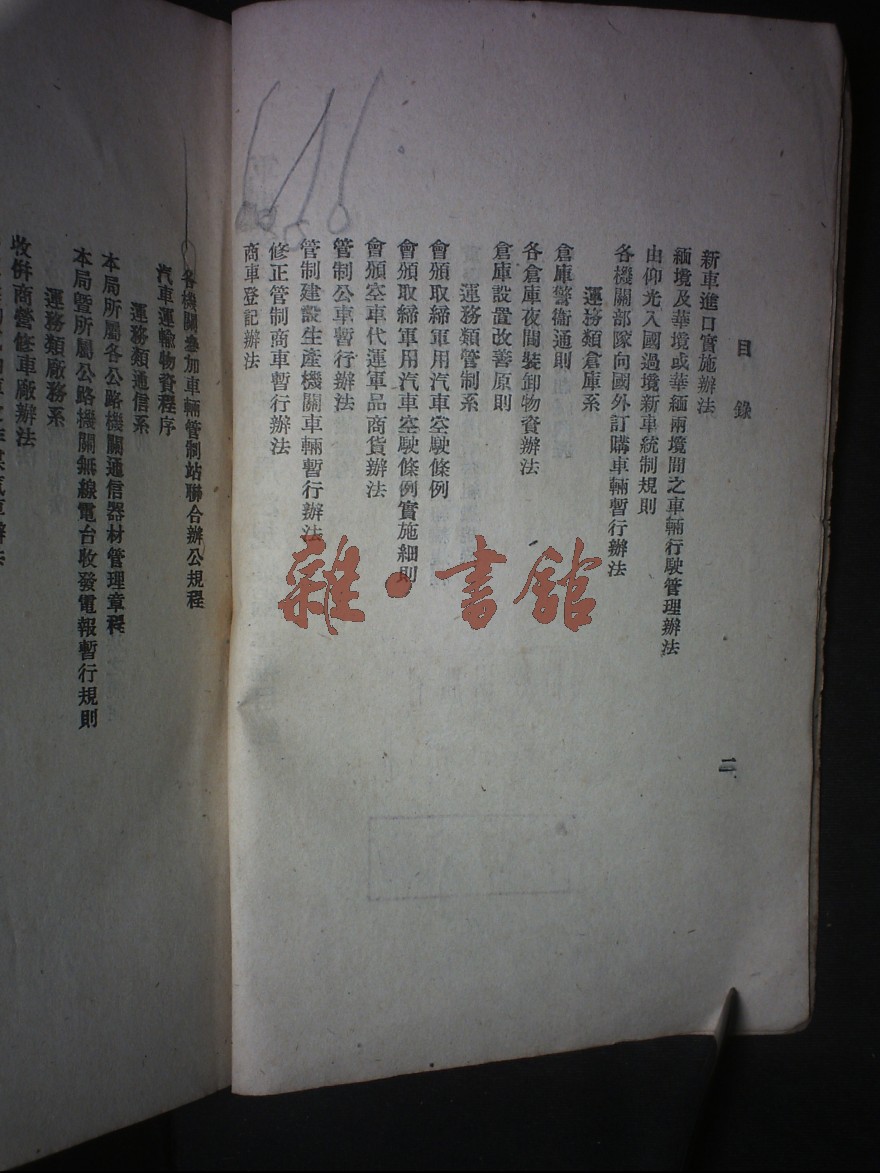 目錄
新車進口實施辦法
緬境及華境或華緬兩境間之車輛行駛管理辦法
由仰光入國過境新車統制規則
各機關部隊向國外訂購車輛暫行辦法
運務類倉庫系
倉庫警衛通則
各倉庫夜間裝卸物資辦法
倉庫設置改善原則
運務類管制系
會頒取締軍用汽車空駛條例
會頒取締軍用汽車空駛條例實施細則
會頒空車代運軍品商貨辦法
管制公車暫行辦法
管制建設生產機關車輛暫行辦法
修正管制商車暫行辦法
商車登記辦法
二
各機關參加車輛管制站聯合辦公規程
汽車運輸物資程序
運務類通信系
本局所屬各公路機關通信器材管理章程
本局暨所屬公路機關無線電台收發電報暫行規則
運務類廠務系
收併商營修車廠辦法
雜·書館